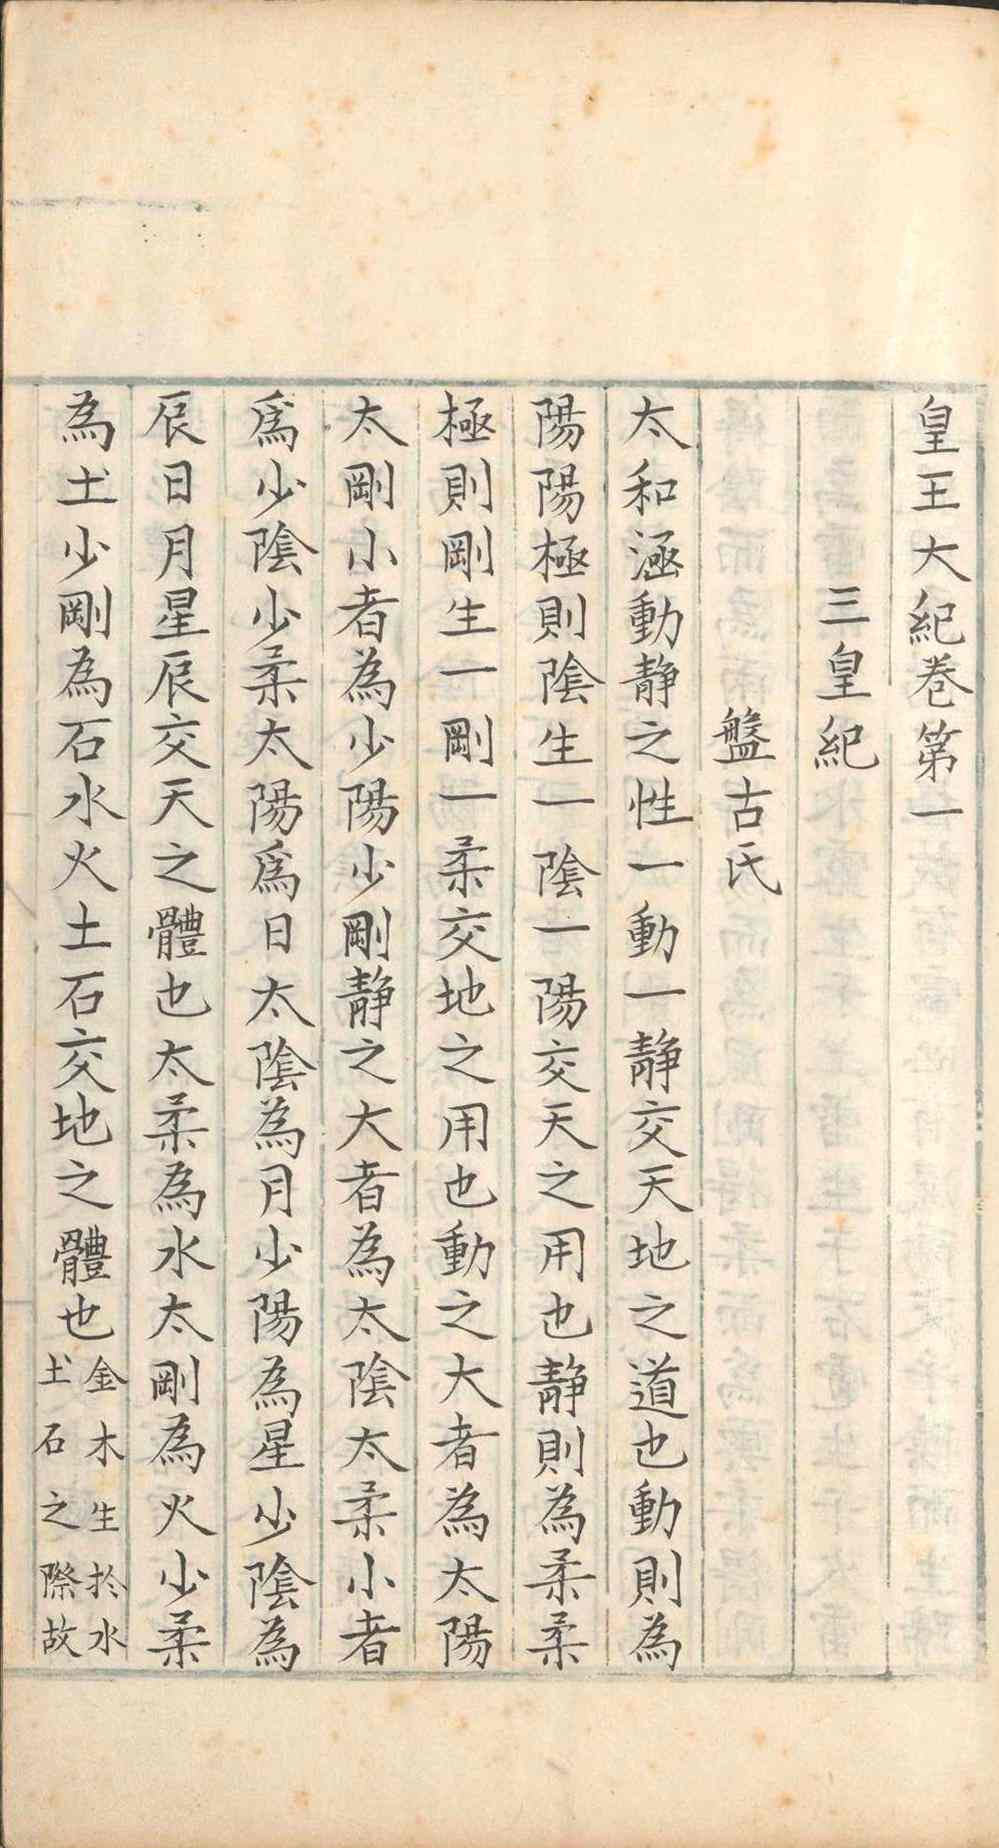 皇王大紀巻第一
三皇紀
盤古氏
太和涵動靜之性一動一靜交天地之道也動則為
陽陽極則陰生一陰一陽交天之用也靜則為柔柔
極則剛剛生一剛一柔交地之用也動之大者為太陽
太剛小者為少陽少剛靜之大者為太陰太柔小者
爲少陰少柔太陽爲日太陰為月少陽為星少陰為
辰日月星辰交天之體也太柔為水太剛為火少柔
為𡈽少剛為石水火土石交地之體也金木生扵水
𡈽石之際故